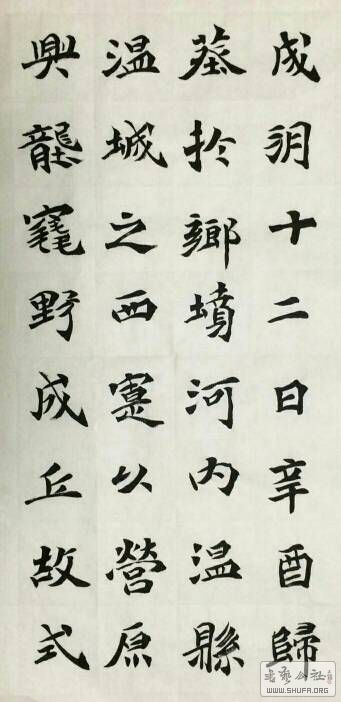 戌朔十二日辛酉歸
葬於鄉墳河内温縣
温城之西寔以營原
興壟竁野成丘故式
书艺公社
WWW.SHUFA.ORG